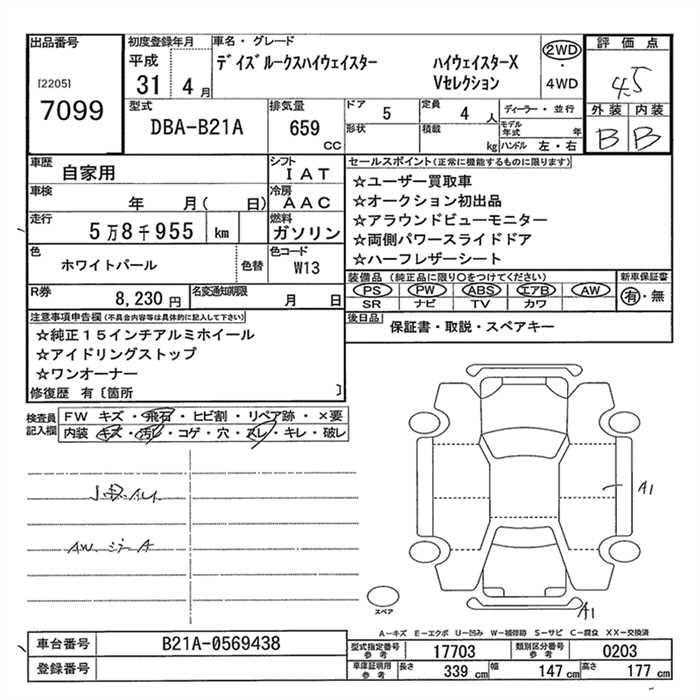 出品番号
[2205]
7099
初度登録年月
平成
31 4 月
車名・グレード
デイズルークスハイウェイスター ハイウェイスターX
Vセレクション
2WD
・
4WD
評価点
4.5
外装 内装
B B
型式
DBA-B21A
排気量
659
CC
ドア 5
定員 4 人
形状
積載 kg
ディーラー・並行
モデル年式 年
ハンドル 左・右
車歴 自家用
シフト
I A T
車検 年 月( 日)
冷房
A A C
走行 5万8千955 km
燃料
ガソリン
色 ホワイトパール 色替
色コード
W13
R券 8,230 円
名変通知期限 月 日
セールスポイント(正常に機能するものに限ります)
☆ユーザー買取車
☆オークション初出品
☆アラウンドビューモニター
☆両側パワースライドドア
☆ハーフレザーシート
装備品 (純正品に限り○をつけてください)
PS PW ABS エアB AW
SR ナビ TV カワ
新車保証書
有・無
後日品 保証書・取説・スペアキー
注意事項申告欄(不具合内容等は具体的に記入して下さい)
☆純正15インチアルミホイール
☆アイドリングストップ
☆ワンオーナー
修復歴 有〔箇所 〕
検査員記入欄
FW キズ・飛石・ヒビ割・リペア跡・×要
内装 キズ・汚レ・コゲ・穴・スレ・キレ・破レ
AW
A
A1
A1
スペア
A―キズ E―エクボ U―凹み W―補修跡 S―サビ C―腐食 XX―交換済
車台番号 B21A-0569438
登録番号
型式指定番号 参考 17703
類別区分番号 参考 0203
車庫証明用 参考 長さ 339 cm 幅 147 cm 高さ 177 cm